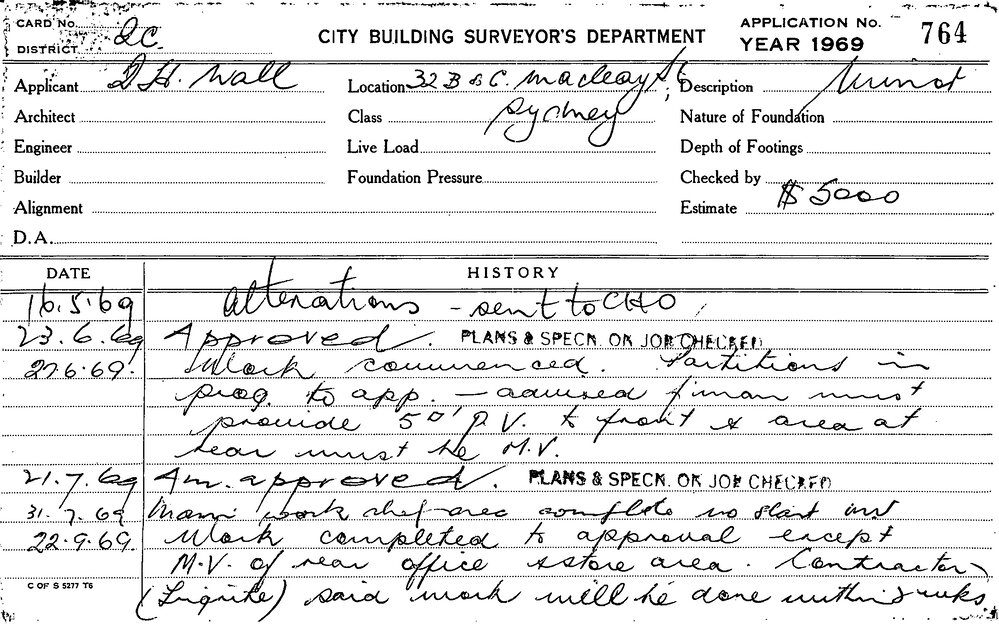 CARD No.
DISTRICT 2C.
CITY BUILDING SURVEYOR'S DEPARTMENT
APPLICATION No. 764
YEAR 1969
Applicant D H. Wall
Location 32 B & C. Macleay St
Sydney
Description
Architect
Class
Nature of Foundation
Engineer
Live Load
Depth of Footings
Builder
Foundation Pressure
Checked by
Alignment
Estimate $ 5000
D.A.
DATE HISTORY
16.5.69 Alterations - sent to CHO
23.6.69 Approved. PLANS & SPECN. ON JOB CHECKED
27.6.69. Work commenced. Partitions in
prog. to app. - advised must
provide 50' P.V. to front & area at
rear must be M.V.
21.7.69 Am. approved. PLANS & SPECN. ON JOB CHECKED
31.7.69 work complete no start
22.9.69. Work completed to approval except
M.V. of rear office & store area. Contractor
said work will be done within
C OF S 5277 T6